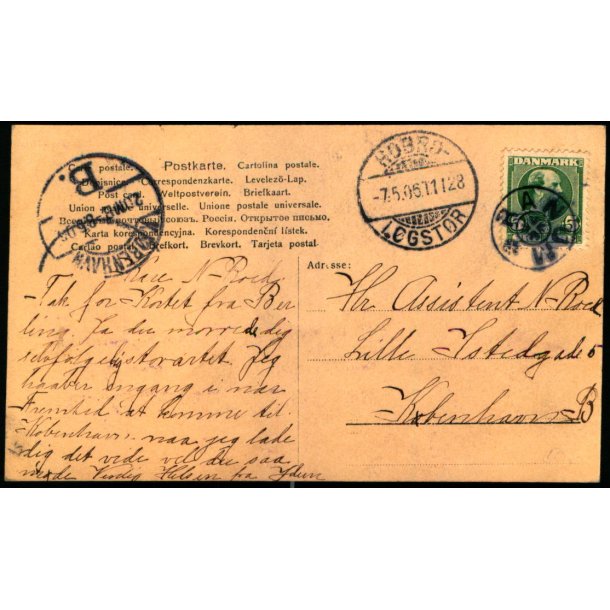 Carte postale. Postkarte. Cartolina postale.
Correspondenzkarte. Levelező-Lap.
Post card. Weltpostverein. Briefkaart.
Union postale universelle. Unione postale universale.
Всемірный почтовый союзъ. Россія. Открытое письмо.
Karta korespondencyjna. Korespondenční lístek.
Cartão postal. Brefkort. Brevkort. Tarjeta postal.
B.
KJØBENHAVN
HOBRO-
-7.5.06.11T128
LØGSTØR
DANMARK
5
Adresse:
Kære N-Roed
Tak for Kortet fra Ber
ling. Ja du morrede dig
selvfølgelig storartet. Jeg
haaber engang i nær
Fremtid at komme til
København. maa jeg lade
dig det vide vil du saa
møde Venlig Hilsen fra
Hr Assistent N-Roed
Lille Istedgade 5
København-B